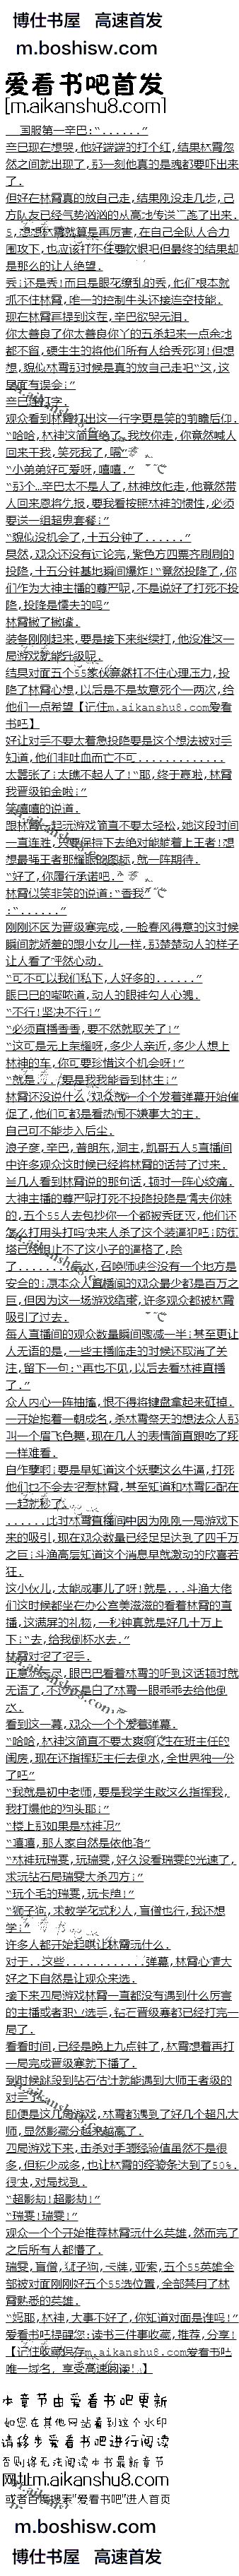 博仕书屋 高速首发
m.boshisw.com
爱看书吧首发
[m.aikanshu8.com]
国服第一辛巴:“......”
辛巴现在想哭,他好端端的打个红,结果林霄忽
然之间就出现了,那一刻他真的是魂都要吓出来
了.
但好在林霄真的放自己走,结果刚没走几步,己
围攻下,也应该打不住要饮恨吧但最终的结果却
是那么的让人绝望.
秀!还是秀!而且是眼花缭乱的秀,他们根本就
抓不住林霄,唯一的控制牛头还接连空技能.
现在林霄再提到这茬,辛巴欲哭无泪.
你太善良了你太善良你丫的五杀起来一点余地
都不留,硬生生的将他们所有人给秀死河!但想
想,貌似林霄那时候是真的放自己走吧“这,这
里面有误会!”
观众看到林霄打出这一行字更是笑的前瞻后仰.
“哈哈,林神这简直绝了,我放你走,你竟然喊人
“小弟弟好可爱呀,嘻嘻.”
“那个...辛巴太不是人了,林神放他走,他竟然带
人回来恩将仇报,要我看按照林神的惯性,必须
要送一组超鬼套餐!”
“貌似没机会了,十五分钟了......”
果然,观众还没有讨论完,紫色方四票齐刷刷的
投降,十五分钟基地瞬间爆炸!“竟然投降了,你
们作为大神主播的尊严呢,不是说好了打死不投
降,投降是懦夫的吗”
林霄撇了撇嘴.
装备刚刚起来,要是接下来继续打,他没准这一
局游戏就能升级呢.
结果对面五个55家伙竟然打不住心理压力,投
降了林霄心想,以后是不是故意死个一两次,给
他们一点希望【记住m.aikanshu8.com爱看
书吧】
好让对手不要太着急投降要是这个想法被对手
知道,他们非吐血而亡不可.............
太嚣张了!太瞧不起人了!“耶,终于赢啦,林霄
我晋级铂金啦!”
笑嘻嘻的说道.
跟林霄一起玩游戏简直不要太轻松,她这段时间
想最强王者那耀眼的图标,就一阵期待.
“好了,你履行承诺吧.”
林霄似笑非笑的说道:“香我”
:“......”
刚刚还因为晋级赛完成,一脸春风得意的这时候
瞬间就娇羞的跟小女儿一样,那楚楚动人的样子
让人看了怦然心动.
“可不可以我们私下,人好多的......”
眼巴巴的嘟哝道,动人的眼眸勾人心魄.
“不行!坚决不行!”
“必须直播香香,要不然就取关了!”
“这可是无上荣耀呀,多少人亲近,多少人想上
林神的车,你可要珍惜这个机会呀!”
林霄还没说什么,观众就一个个发着弹幕开始催
促了,他们可都是看热闹不嫌事大的主.
自己可不能步入后尘.
浪子彦,辛巴,普朗东,洞主,凯哥五人5直播间
中许多观众这时候已经将林霄的话带了过来.
当几人看到林霄说的那句话,顿时一阵心绞痛.
大神主播的尊严呢打死不投降投降是懦夫你妹
的,五个55人去包抄你一个都被秀团灭,他们还
怎么打用头打吗快来人杀了这个装逼犯吧!防御
塔已经阻止不了这小子的逼格了,除
巨,但因为这一场游戏结束,许多观众都被林霄
吸引了过去.
每人直播间的观众数量瞬间骤减一半!甚至更让
人无语的是,一些主播临走的时候还取消了关
注,留下一句:“再也不见,以后去看林神直播
了.”
众人内心一阵抽搐,恨不得将键盘拿起来砸掉.
一开始抱着一朝成名,杀林霄祭天的想法众人那
叫一个眉飞色舞,现在几人的表情简直跟吃了翔
一样难看.
自作孽啊!要是早知道这个妖孽这么牛逼,打死
他们也不会去招惹林霄,甚至知道和林霄匹配在
一起就秒了.
......此时林霄直播间中因为刚刚一局游戏下
来的吸引,现在观众数量已经足足达到了四千万
之巨!斗渔高层知道这个消息早就激动的欣喜若
狂.
这小伙儿,太能成事儿了呀!就是...斗渔大佬
们这时候都坐在办公室美滋滋的看着林霄的直
播,这满屏的礼物,一秒钟真就是好几十万上
下!“去,给我倒杯水去.”
林霄对招了招手.
正意犹未尽,眼巴巴看着林霄的听到这话顿时就
无语了,不过还是白了林霄一眼乖乖去给他倒
水.
看到这一幕,观众一个个发着弹幕.
“哈哈,林神这简直不要太爽啊,住在班主任的
闺房,现在还指挥班主任去倒水,全世界独一份
了吧”
“我就是初中老师,要是我学生敢这么指挥我,
我打爆他的狗头耶!”
“楼上那如果是林神呢”
“嘻嘻,那人家自然是依他咯”
“林神玩瑞雯,玩瑞雯,好久没看瑞雯的光速了,
求玩钻石局瑞雯大杀四方!”
“玩个毛的瑞雯,玩卡牌!”
“狮子狗,求教学花式秒人,盲僧也行,我还想
学!”
许多人都开始起哄让林霄玩什么.
对于..这些............弹幕,林霄心情大
好之下自然是让观众来选.
接下来四局游戏林霄一直都没有遇到什么厉害
的主播或者职业选手,钻石晋级赛都已经打完一
局了.
看看时间,已经是晚上九点钟了,林霄想着再打
一局完成晋级赛就下播了.
到时候跳段到钻石估计就能遇到大师王者级的
对手了.
即便是这几局游戏,林霄都遇到了好几个超凡大
师,显然影藏分起来越高了.
四局游戏下来,击杀对手的经验值虽然不是很
多,但积少成多,也让林霄的经验条达到了50%.
很快,对局找到.
“超影劫!超影劫!”
“瑞雯!瑞雯!”
观众一个个开始推荐林霄玩什么英雄,然而完了
之后所有人都懵了.
瑞雯,盲僧,狮子狗,卡牌,亚索,五个55英雄全
部被对面刚刚好五个55选位置,全部禁用了林
霄熟悉的英雄.
“妈耶,林神,大事不好了,你知道对面是谁吗!”
爱看书吧提醒您:读书三件事收藏,推荐,分享!
【记住收藏保存m.aikanshu8.com爱看书吧
唯一域名，享受高速阅读!.】
本章节由爱看书吧更新
如您在其他网站看到这个水印
请移步爱看书吧进行阅读
否则将无法阅读本书最新章节
网址m.aikanshu8.com
或者百度搜索“爱看书吧”进入首页
m.boshisw.com
博仕书屋 高速首发